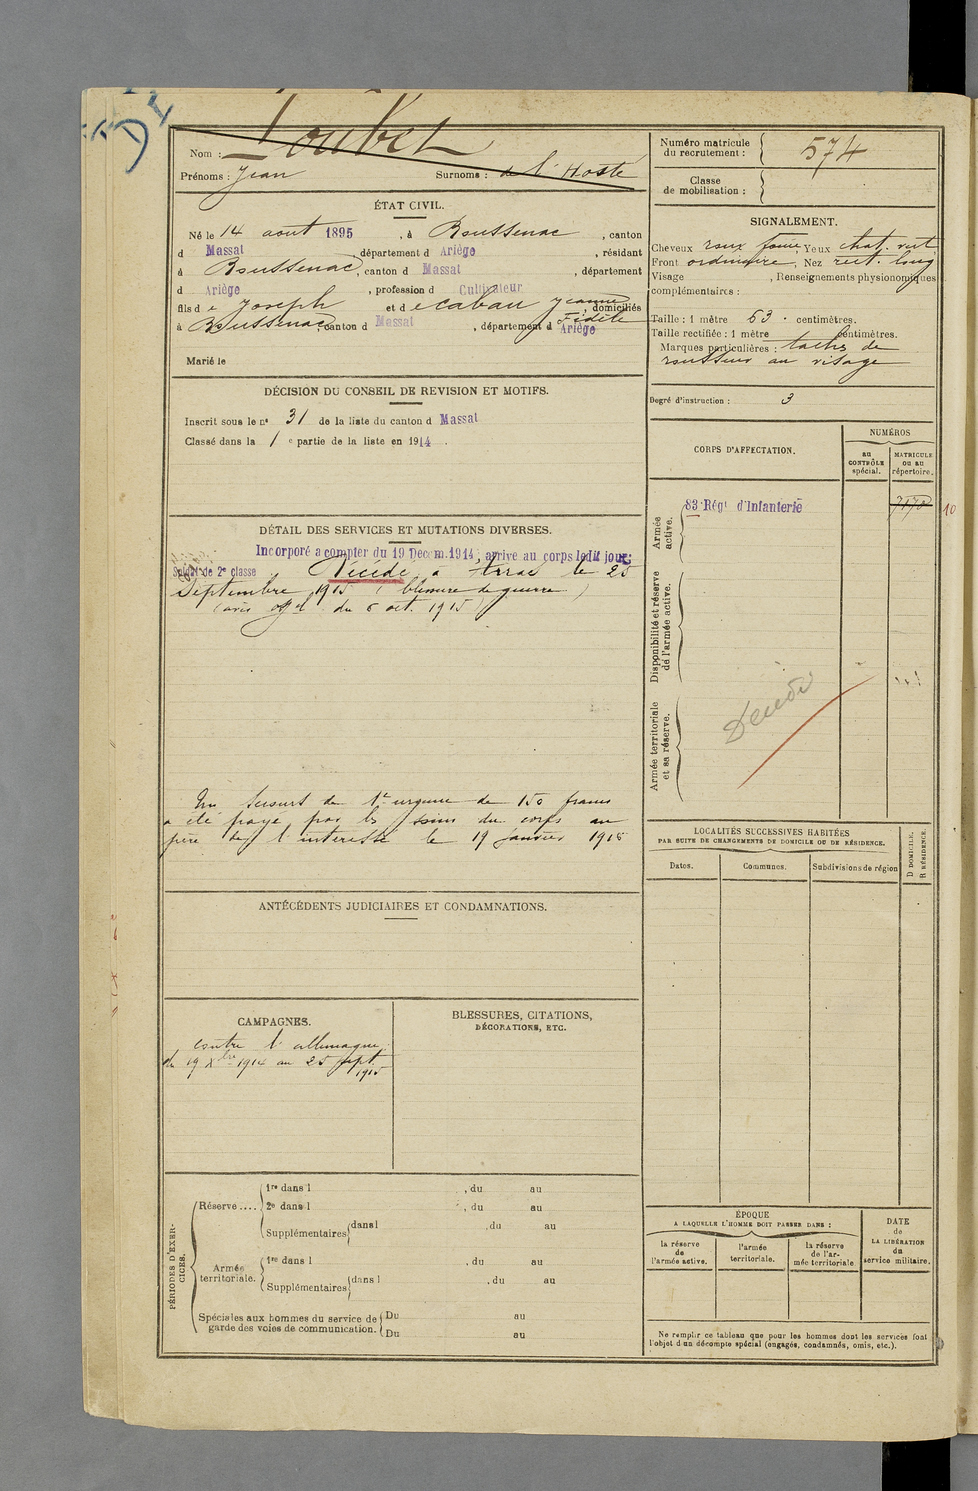 Nom : Loubet
Prénoms : Jean Surnoms : de l'Hoste
ÉTAT CIVIL.
Né le 14 aout 1895, à Boussenac, canton
d Massat, département d Ariège, résidant
à Boussenac, canton d Massat, département
d Ariège, profession d Cultivateur
fils de Joseph et d ecabau Jeanne Fidèle, domiciliés
à Boussenac, canton d Massat, département d Ariège
Marié le
DÉCISION DU CONSEIL DE REVISION ET MOTIFS.
Inscrit sous le nº 31 de la liste du canton d Massat
Classé dans la 1e partie de la liste en 1914.
DÉTAIL DES SERVICES ET MUTATIONS DIVERSES.
Incorporé a compter du 19 Decem. 1914; arrivé au corps ledit jour;
Soldat de 2e classe. Décédé à Arras le 25
Septembre 1915 (blessure de guerre)
(avis off el du 6 oct. 1915)
Un secours de 1re urgence de 150 francs
a été payé par les soins du corps au
père de l'interessé le 19 Janvier 1916
ANTÉCÉDENTS JUDICIAIRES ET CONDAMNATIONS.
CAMPAGNES.
contre l'allemagne
du 19 Xbre 1914 au 25 sept. 1915
BLESSURES, CITATIONS,
DÉCORATIONS, ETC.
PÉRIODES D'EXERCICES.
Réserve....
1re dans l , du au
2e dans l , du au
Supplémentaires dans l , du au
Armée territoriale.
1re dans l , du au
Supplémentaires dans l , du au
Spéciales aux hommes du service de
garde des voies de communication.
Du au
Du au
Numéro matricule
du recrutement : 574
Classe
de mobilisation :
SIGNALEMENT.
Cheveux roux foncé Yeux chat. vert
Front ordinaire, Nez rect. long
Visage , Renseignements physionomiques
complémentaires :
Taille : 1 mètre 63 centimètres.
Taille rectifiée : 1 mètre centimètres.
Marques particulières : taches de
rousseur au visage
Degré d'instruction : 3
CORPS D'AFFECTATION.
NUMÉROS
au
CONTRÔLE
spécial.
MATRICULE
OU AU
répertoire.
Armée
active.
83e Régt d'Infanterie
10
Disponibilité et réserve
de l'armée active.
Décédé
Armée territoriale
et sa réserve.
LOCALITÉS SUCCESSIVES HABITÉES
PAR SUITE DE CHANGEMENTS DE DOMICILE OU DE RÉSIDENCE.
Dates.
Communes.
Subdivisions de région
D DOMICILE.
R RÉSIDENCE.
ÉPOQUE
A LAQUELLE L'HOMME DOIT PASSER DANS :
la réserve
de
l'armée active.
l'armée
territoriale.
la réserve
de l'ar-
mée territoriale
DATE
de
LA LIBÉRATION
du
service militaire.
Ne remplir ce tableau que pour les hommes dont les services font
l'objet d'un décompte spécial (engagés, condamnés, omis, etc.).